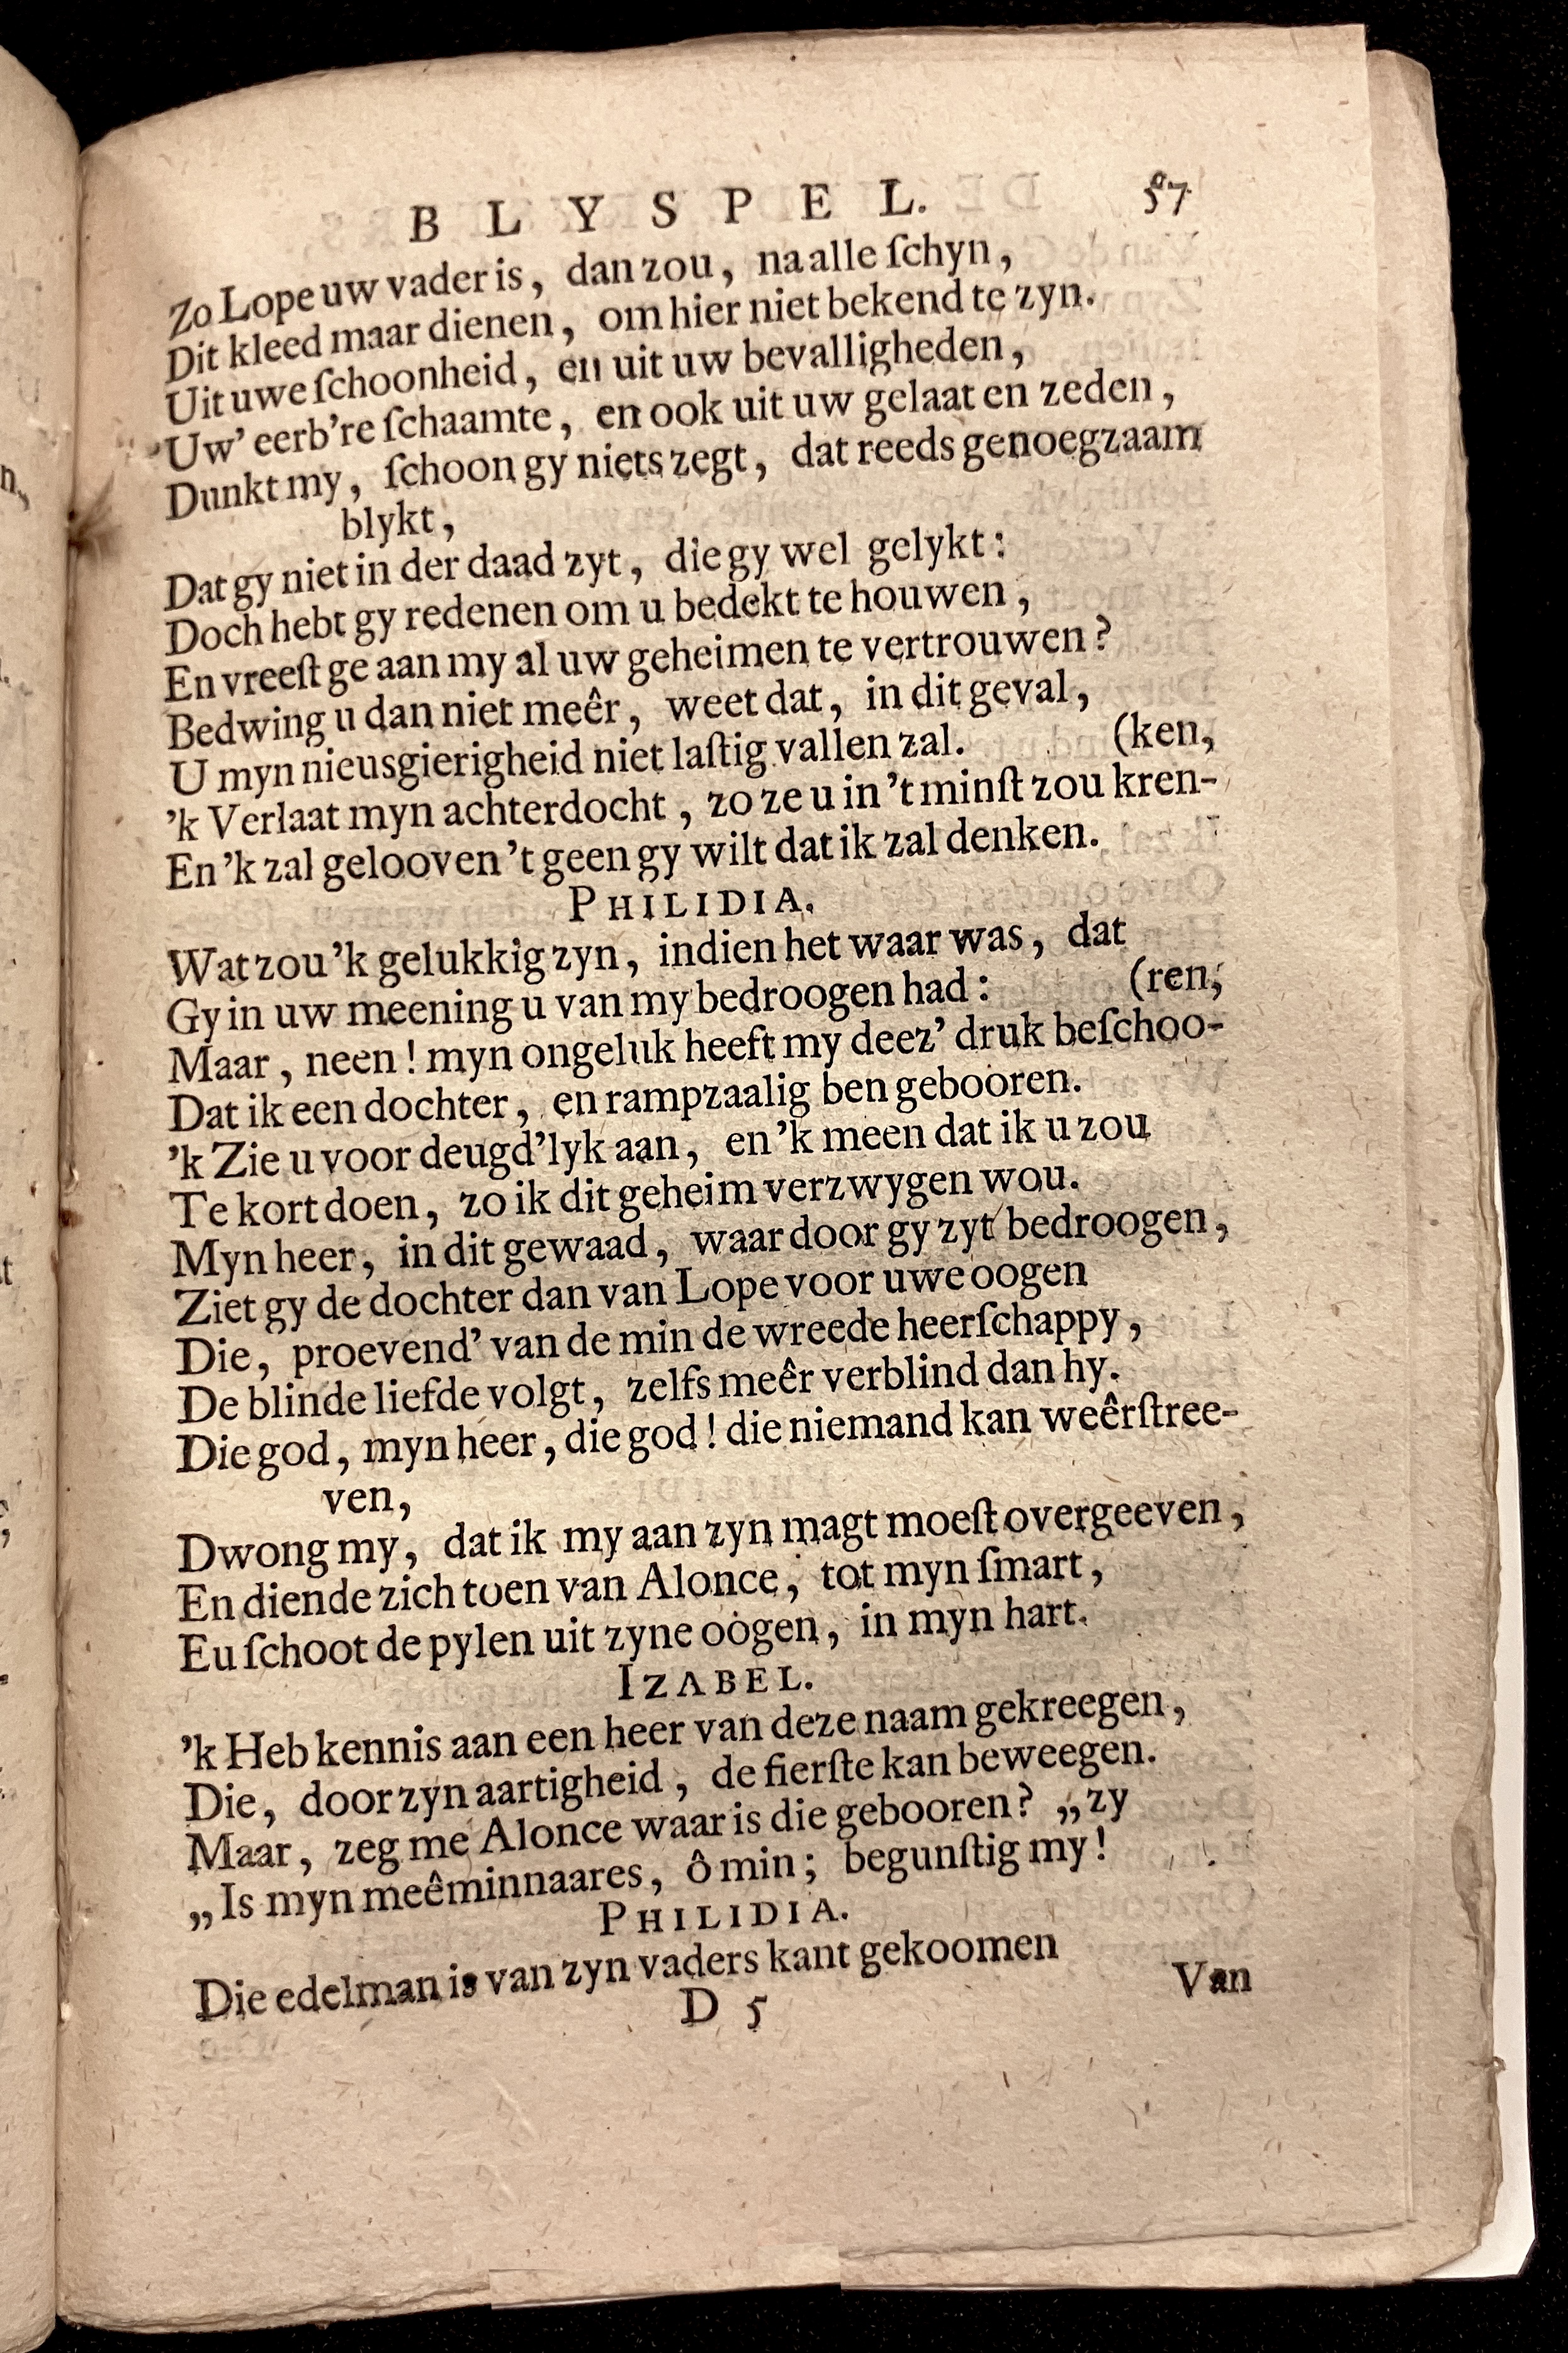 BLYSPEL. 57
Zo Lope uw vader is, dan zou, na alle ſchyn,
Dit kleed maar dienen, om hier niet bekend te zyn.
Uit uwe ſchoonheid, en uit uw bevalligheden,
Uw' eerb're ſchaamte, en ook uit uw gelaat en zeden,
Dunkt my, ſchoon gy niets zegt, dat reeds genoegzaam
blykt,
Dat gy niet in der daad zyt, die gy wel gelykt:
Doch hebt gy redenen om u bedekt te houwen,
En vreeſt ge aan my al uw geheimen te vertrouwen?
Bedwing u dan niet meêr, weet dat, in dit geval,
U myn nieusgierigheid niet laſtig vallen zal. (ken,
'k Verlaat myn achterdocht, zo ze u in 't minſt zou kren-
En 'k zal gelooven 't geen gy wilt dat ik zal denken.
PHILIDIA.
Wat zou 'k gelukkig zyn, indien het waar was, dat
Gy in uw meening u van my bedroogen had: (ren,
Maar, neen! myn ongeluk heeft my deez' druk beſchoo-
Dat ik een dochter, en rampzaalig ben gebooren.
'k Zie u voor deugd'lyk aan, en 'k meen dat ik u zou
Te kort doen, zo ik dit geheim verzwygen wou.
Myn heer, in dit gewaad, waar door gy zyt bedroogen,
Ziet gy de dochter dan van Lope voor uwe oogen
Die, proevend' van de min de wreede heerſchappy,
De blinde liefde volgt, zelfs meêr verblind dan hy.
Die god, myn heer, die god! die niemand kan weêrſtree-
ven,
Dwong my, dat ik my aan zyn magt moeſt overgeeven,
En diende zich toen van Alonce, tot myn ſmart,
Eu ſchoot de pylen uit zyne oogen, in myn hart.
IZABEL.
'k Heb kennis aan een heer van deze naam gekreegen,
Die, door zyn aartigheid, de fierſte kan beweegen.
Maar, zeg me Alonce waar is die gebooren? „zy
„Is myn meêminnaares, ô min; begunſtig my!
PHILIDIA.
Die edelman is van zyn vaders kant gekoomen
D 5 Van